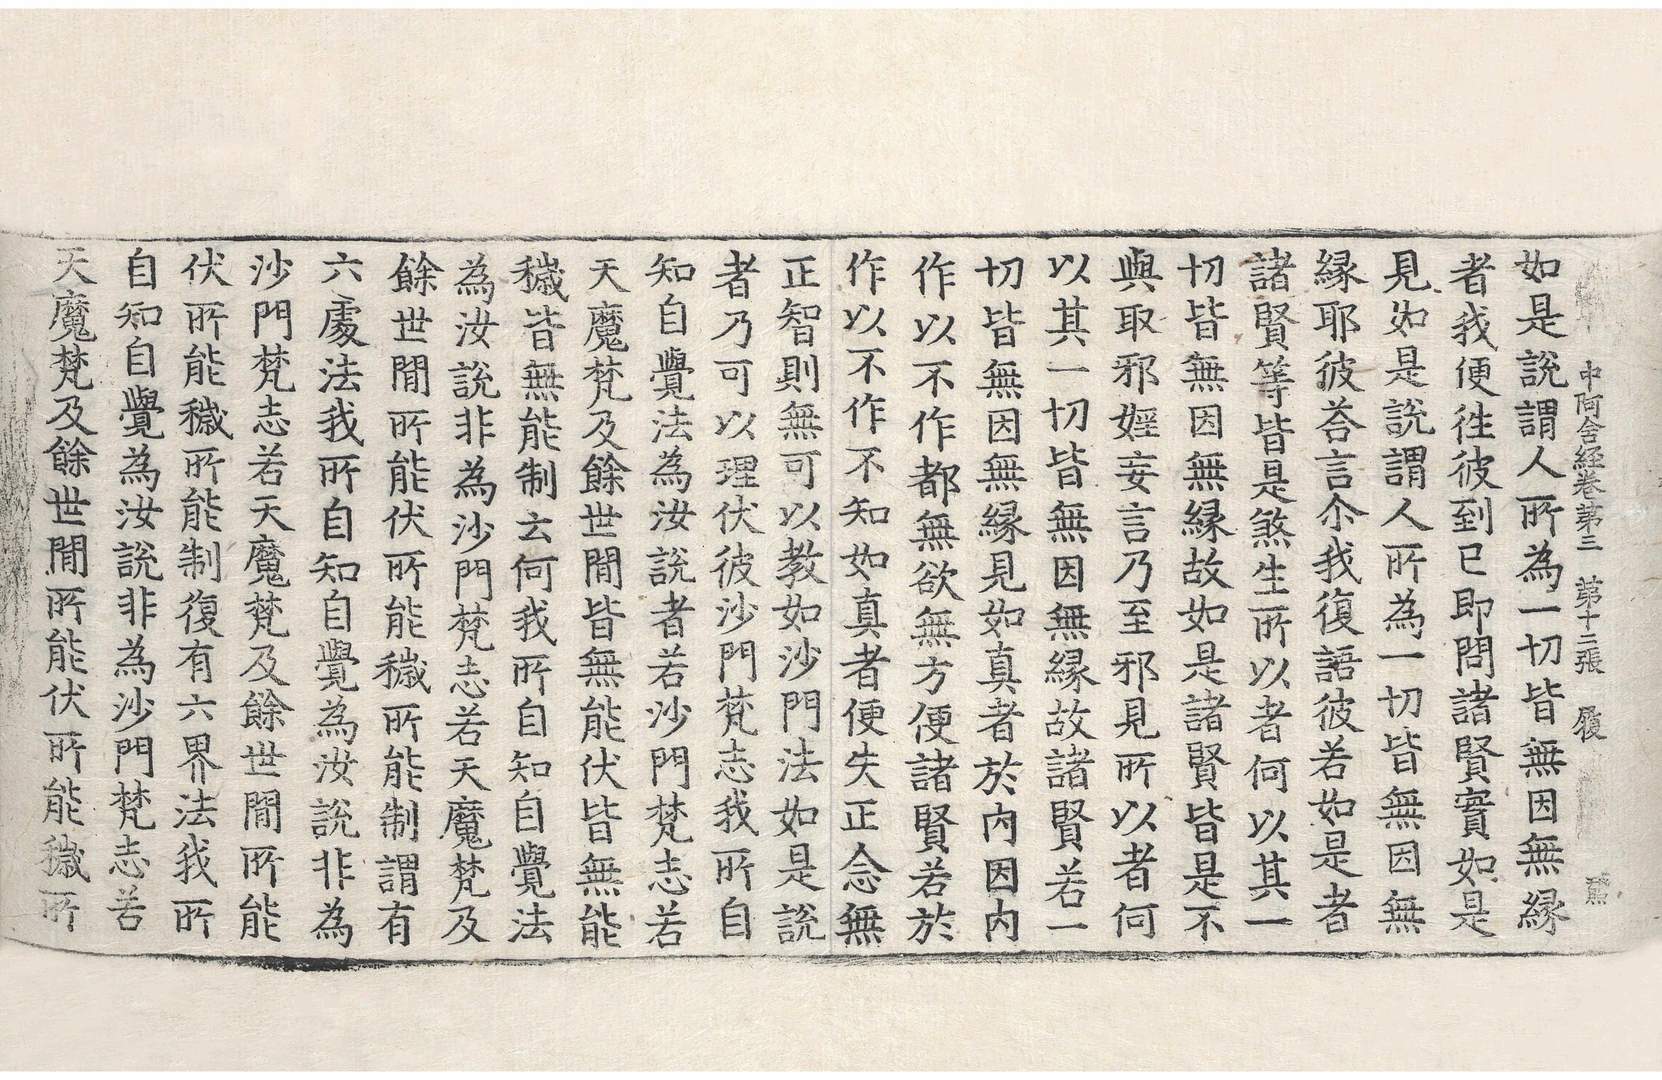 中阿含経卷第三 第十二張 履
如是說謂人所為一切皆無因無縁
者我便徃彼到已即問諸賢實如是
見如是說謂人所為一切皆無因無
縁耶彼荅言尒我復語彼若如是者
諸賢等皆是煞生所以者何以其一
切皆無因無縁故如是諸賢皆是不
與取邪婬妄言乃至邪見所以者何
以其一切皆無因無縁故諸賢若一
切皆無因無縁見如真者於內因內
作以不作都無欲無方便諸賢若於
作以不作不知如真者便失正念無
正智則無可以教如沙門法如是說
者乃可以理伏彼沙門梵志我所自
知自覺法為汝說者若沙門梵志若
天魔梵及餘世閒皆無能伏皆無能
穢皆無能制云何我所自知自覺法
為汝說非為沙門梵志若天魔梵及
餘世閒所能伏所能穢所能制謂有
六處法我所自知自覺為汝說非為
沙門梵志若天魔梵及餘世閒所能
伏所能穢所能制復有六界法我所
自知自覺為汝說非為沙門梵志若
天魔梵及餘世閒所能伏所能穢所